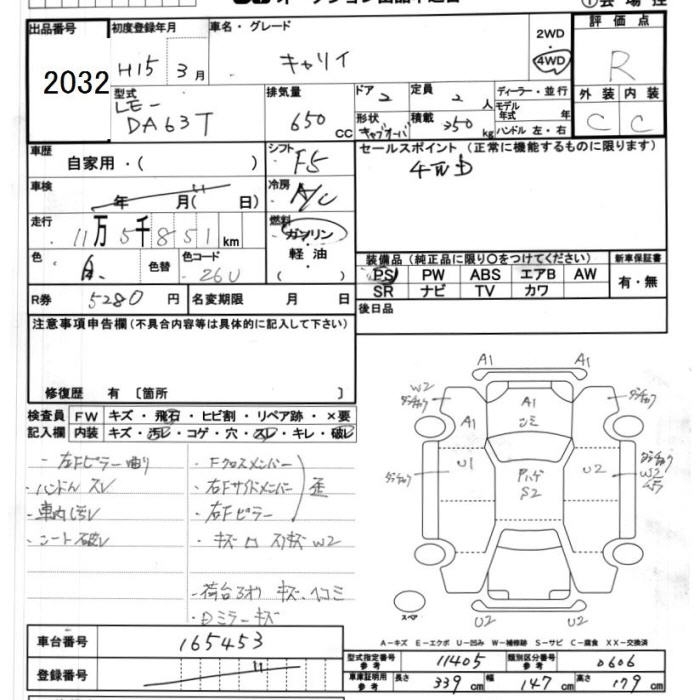 オークション出品申込書
出品番号
2032
初度登録年月
H15年 3月
車名・グレード
キャリイ
2WD
4WD
評価点
R
型式
LE-
DA63T
排気量
650 CC
ドア 2
定員 2人
形状 キャブオーバ
積載 350 kg
ディーラー・並行
モデル年式 年
ハンドル 左・右
外装 内装
C C
車歴
自家用・( )
シフト F5
セールスポイント (正常に機能するものに限ります)
4WD
車検
年 月( 日)
冷房 A/C
走行
11万5千851km
燃料
ガソリン
軽油
( )
色
白
色替
色コード
26U
装備品 (純正品に限り○をつけてください)
PS PW ABS エアB AW
SR ナビ TV カワ
新車保証書
有・無
R券 5280円
名変期限 月 日
後日品
注意事項申告欄(不具合内容等は具体的に記入して下さい)
修復歴 有 〔箇所 〕
検査員記入欄
FW キズ・飛石・ヒビ割・リペア跡・×要
内装 キズ・汚レ・コゲ・穴・スレ・キレ・破レ
・左Fピラー曲り
・ハンドルスレ
・車内汚レ
・シート破レ
・Fクロスメンバー
・右Fサイドメンバー
・右Fピラー
歪
・キズ ロ スリキズ W2
・荷台アオリ キズ、ヘコミ
・Dミラーキズ
A1 A1
W2
A1
U1
U2
S2
W2
U2 U2
スペア
A-キズ E-エクボ U-凹み W-補修跡 S-サビ C-腐食 XX-交換済
車台番号
165453
登録番号
型式指定番号 参考 11405
類別区分番号 参考 0606
車庫証明用 参考 長さ 339cm 幅 147cm 高さ 179cm